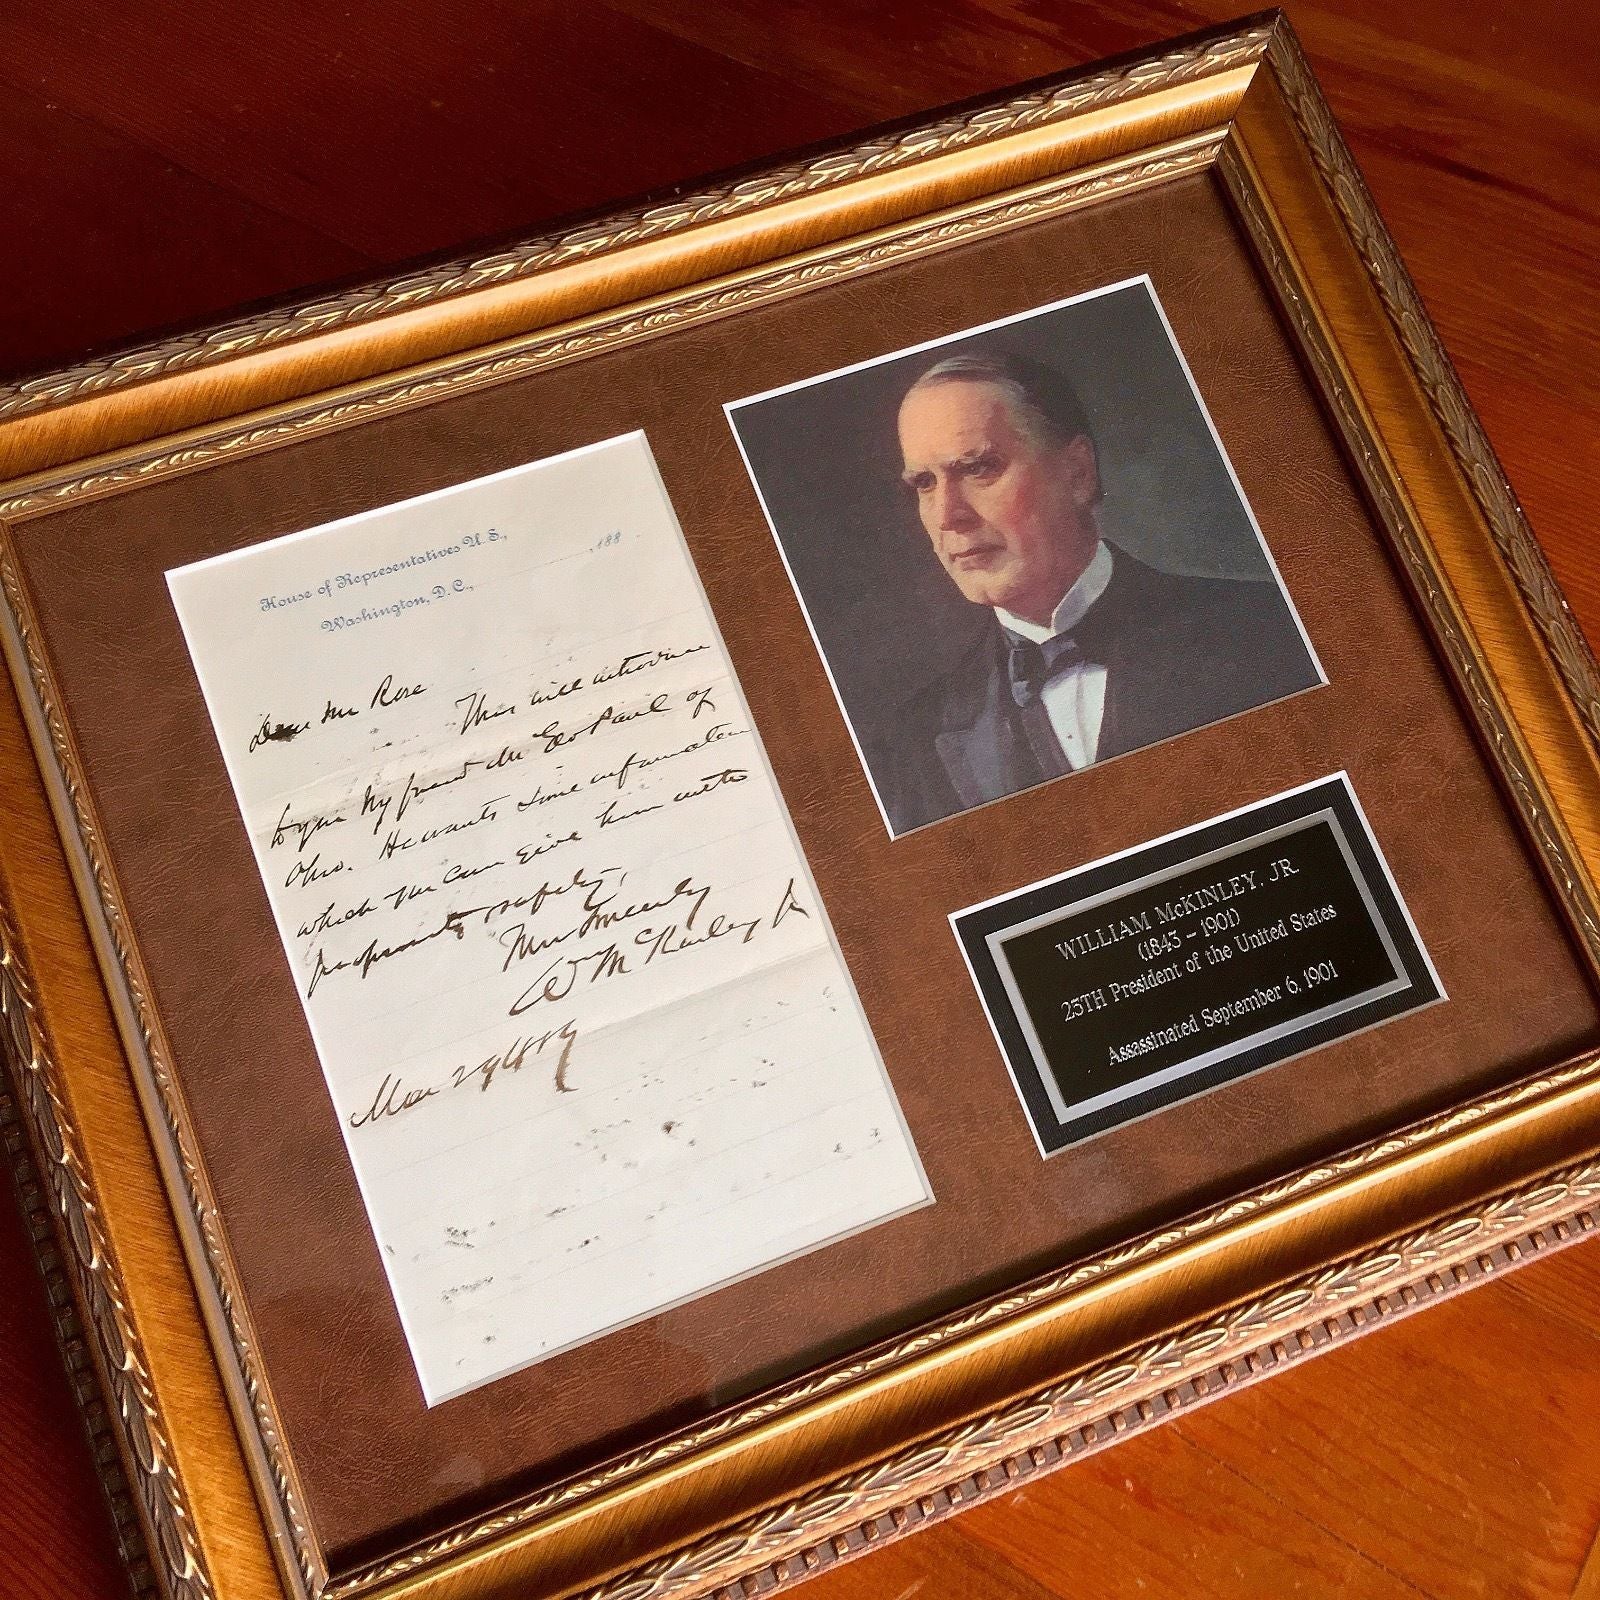 House of Representatives U.S.,
Washington, D.C., , 188
Dear Mr Rose
This will introduce
to you my friend Mr Geo Paul of
Ohio. He wants some information
which you can give him with
perfect safety,
Yours Sincerely
Wm McKinley Jr
Mar 29 1889
WILLIAM McKINLEY, JR.
(1843 – 1901)
25TH President of the United States
Assassinated September 6, 1901